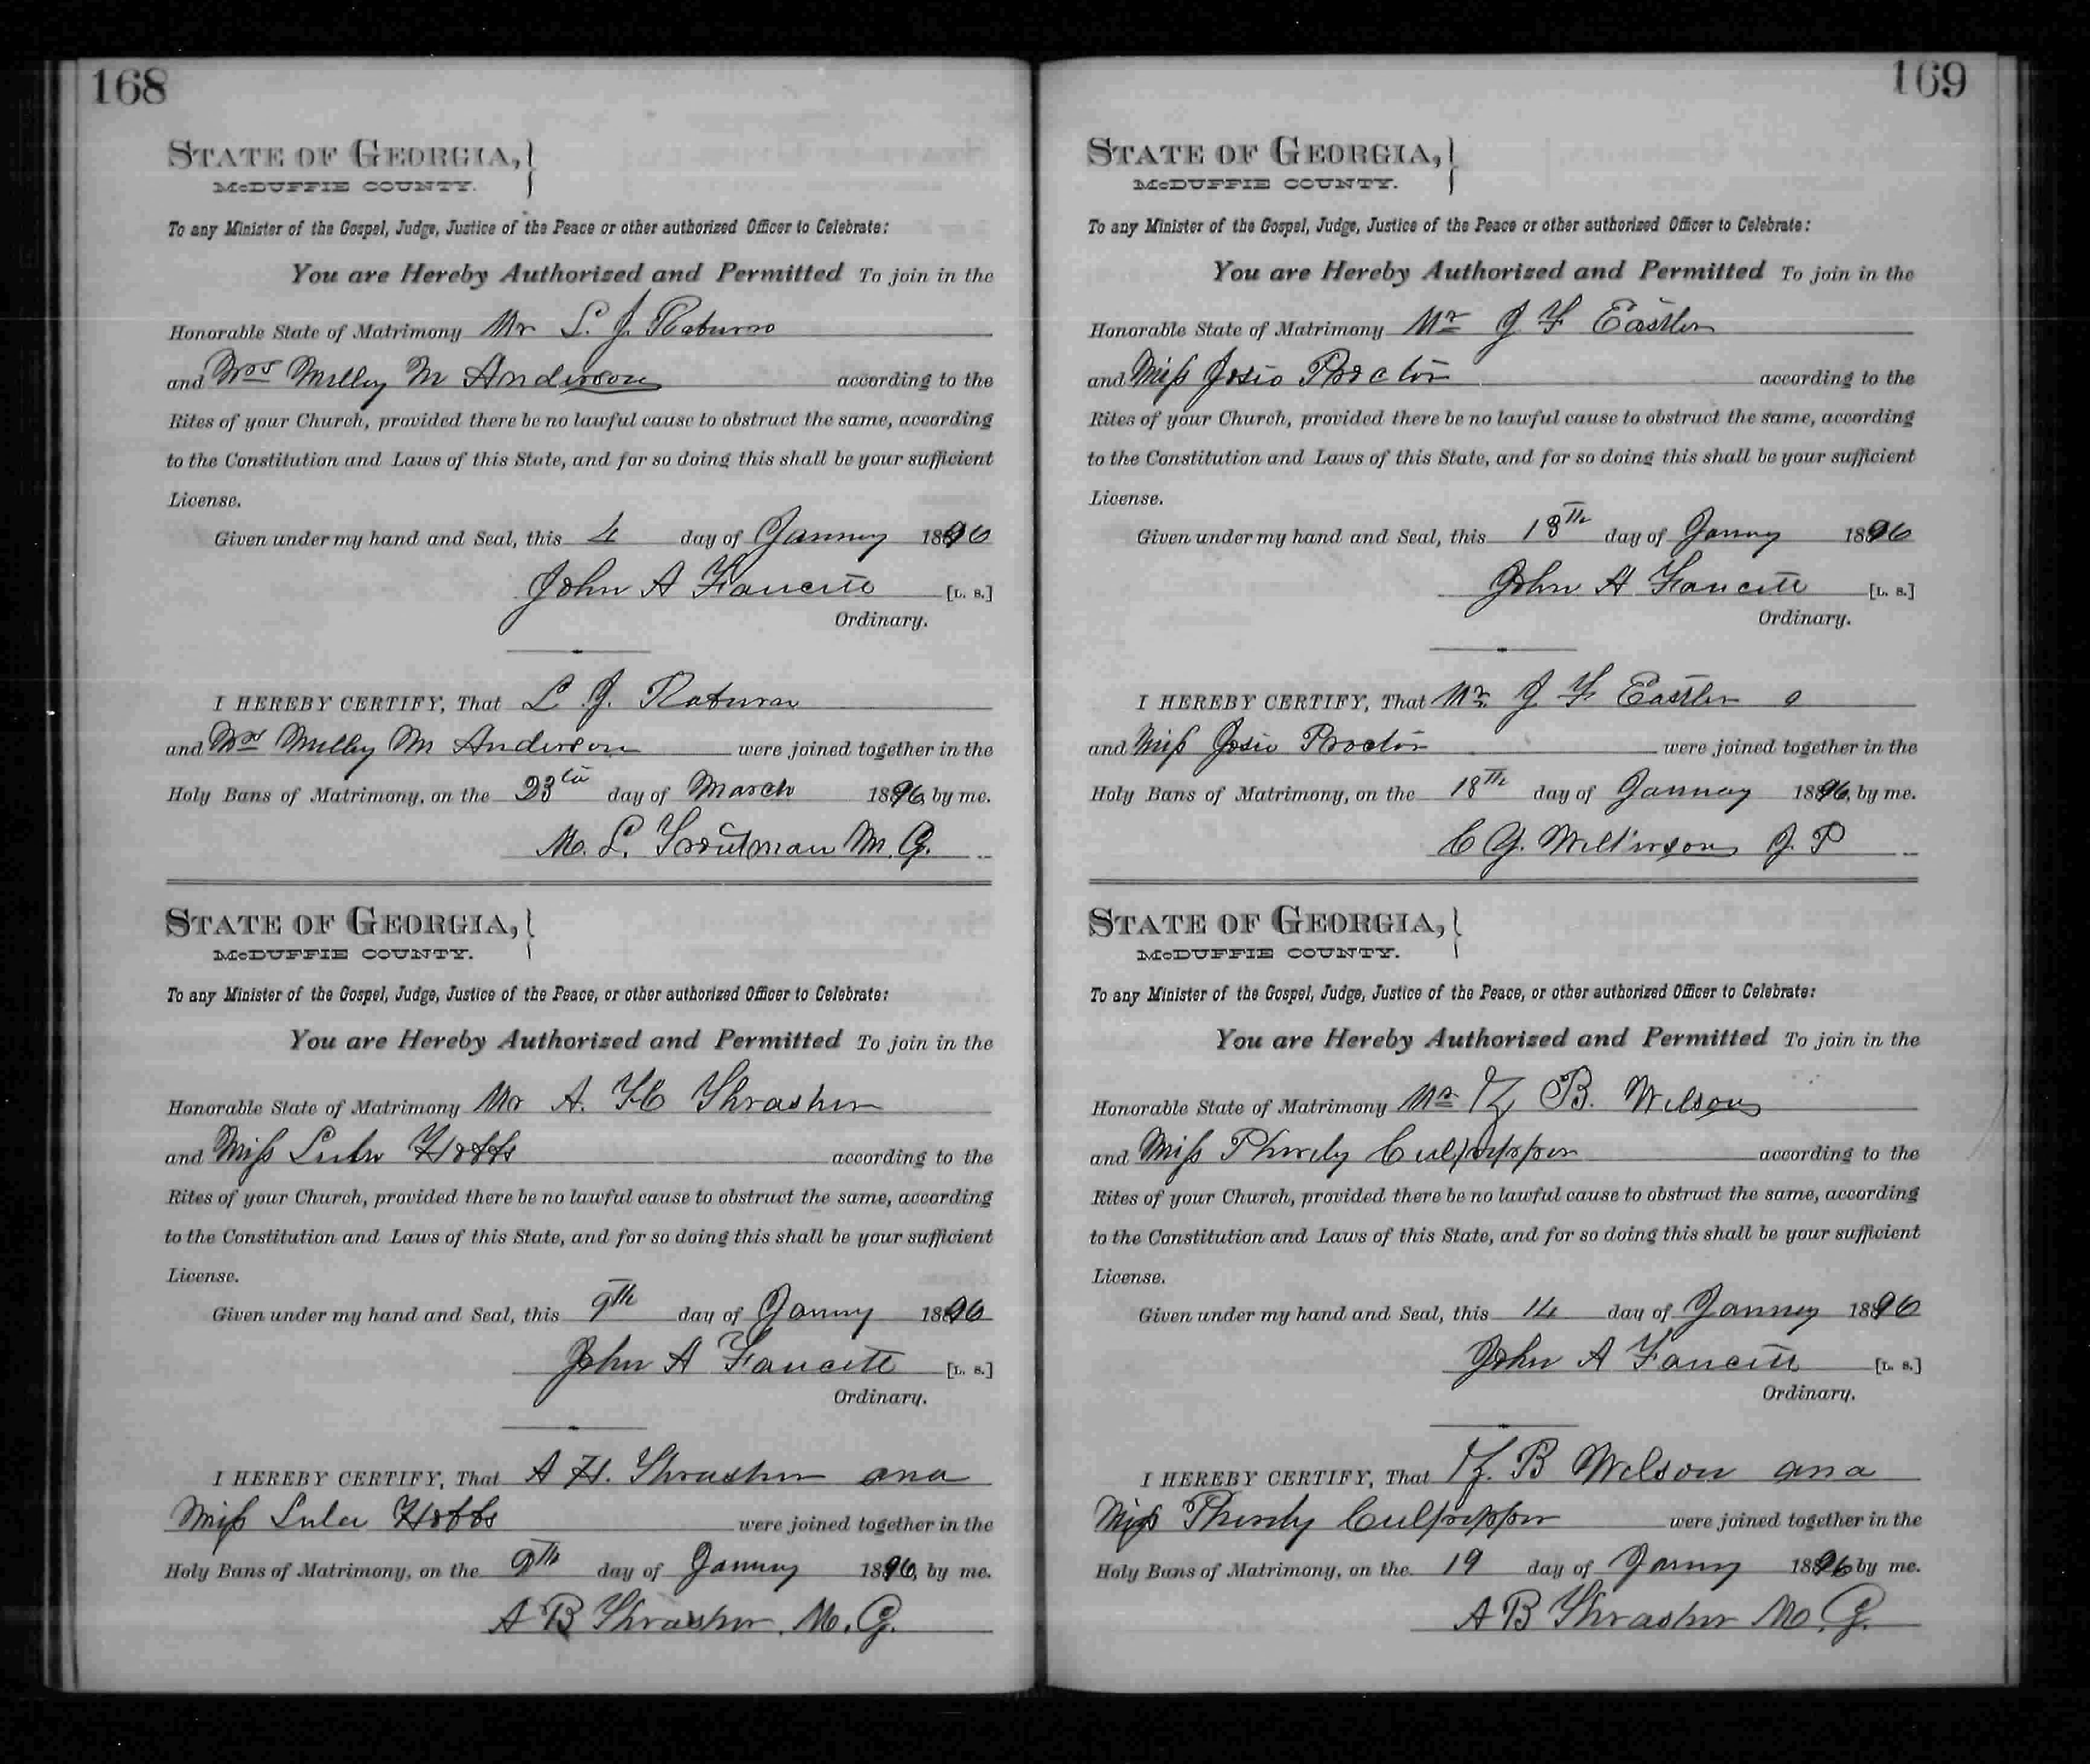 168
STATE OF GEORGIA,
McDUFFIE COUNTY.
To any Minister of the Gospel, Judge, Justice of the Peace or other authorized Officer to Celebrate:
You are Hereby Authorized and Permitted To join in the
Honorable State of Matrimony Mr L. J.
and Mrs Milley M Anderson according to the
Rites of your Church, provided there be no lawful cause to obstruct the same, according
to the Constitution and Laws of this State, and for so doing this shall be your sufficient
License.
Given under my hand and Seal, this 4 day of 1896
John A [L. S.]
Ordinary.
I HEREBY CERTIFY, That L. J.
and Mrs Milley M Anderson were joined together in the
Holy Bans of Matrimony, on the 23 day of March 1896, by me.
M. L. Troutman M. G.
STATE OF GEORGIA,
McDUFFIE COUNTY.
To any Minister of the Gospel, Judge, Justice of the Peace, or other authorized Officer to Celebrate:
You are Hereby Authorized and Permitted To join in the
Honorable State of Matrimony Mr A. H Thrasher
and Miss Lula Hobbs according to the
Rites of your Church, provided there be no lawful cause to obstruct the same, according
to the Constitution and Laws of this State, and for so doing this shall be your sufficient
License.
Given under my hand and Seal, this 9th day of 1896
John A [L. S.]
Ordinary.
I HEREBY CERTIFY, That A H. Thrasher and
Miss Lula Hobbs were joined together in the
Holy Bans of Matrimony, on the 9th day of 1896, by me.
A B Thrasher. M. G.
169
STATE OF GEORGIA,
McDUFFIE COUNTY.
To any Minister of the Gospel, Judge, Justice of the Peace or other authorized Officer to Celebrate:
You are Hereby Authorized and Permitted To join in the
Honorable State of Matrimony Mr J F
and Miss Josie Proctor according to the
Rites of your Church, provided there be no lawful cause to obstruct the same, according
to the Constitution and Laws of this State, and for so doing this shall be your sufficient
License.
Given under my hand and Seal, this day of 1896
John A [L. S.]
Ordinary.
I HEREBY CERTIFY, That Mr. J F
and Miss Josie Proctor were joined together in the
Holy Bans of Matrimony, on the 18th day of 1896, by me.
C G. Wilkinson J. P
STATE OF GEORGIA,
McDUFFIE COUNTY.
To any Minister of the Gospel, Judge, Justice of the Peace, or other authorized Officer to Celebrate:
You are Hereby Authorized and Permitted To join in the
Honorable State of Matrimony Mr B. Wilson
and Miss Culpepper according to the
Rites of your Church, provided there be no lawful cause to obstruct the same, according
to the Constitution and Laws of this State, and for so doing this shall be your sufficient
License.
Given under my hand and Seal, this 14 day of 1896
John A [L. S.]
Ordinary.
I HEREBY CERTIFY, That B Wilson and
Miss Culpepper were joined together in the
Holy Bans of Matrimony, on the 19 day of 1896 by me.
A B Thrasher M. G.